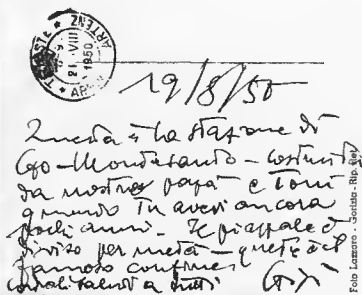 ARTENZ
21. VIII
1950
19/8/50
Questa è la stazione di
Go-Montesanto - costruita
da nostro papà e Toni
quando Tu avevi ancora
pochi anni. Il piazzale è
diviso per metà - questo è il
famoso confine
saluti a tutti
Foto Lazzaro - Gorizia - Rip. Viet.